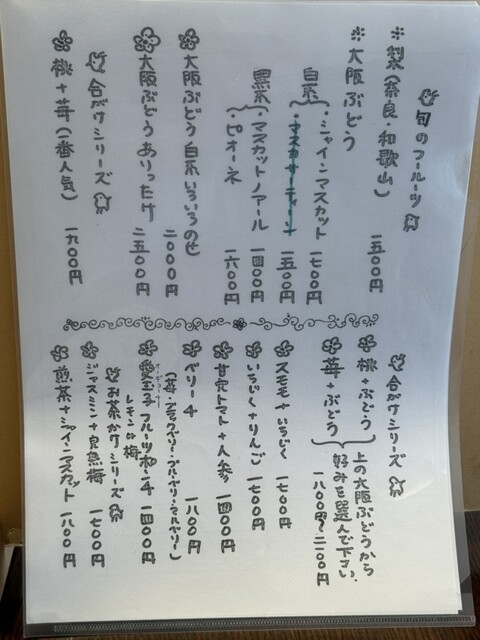 旬のフルーツ
※ 梨(奈良・和歌山) 一五〇〇円
※ 大阪ぶどう
白系
・シャインマスカット 一七〇〇円
・マスカサーティーン 一五〇〇円
黒系
・マスカットノアール 一四〇〇円
・ピオーネ 一六〇〇円
大阪ぶどう 白系いろいろのせ 二〇〇〇円
大阪ぶどう ありったけ 二五〇〇円
合がけシリーズ
桃+苺(一番人気) 一九〇〇円
合がけシリーズ
桃+ぶどう
苺+ぶどう
上の大阪ぶどうから
好みを選んで下さい。
一八〇〇円〜二一〇〇円
スモモ+いちじく 一七〇〇円
いちじく+りんご 一七〇〇円
甘完トマト+人参 一四〇〇円
ベリー4 一八〇〇円
(苺・ブラックベリー・ブルーベリー・マルベリー)
愛玉子 フルーツポンチ 一四〇〇円
オーギョーチー
レモン or 梅
お茶がけシリーズ
ジャスミン+完熟梅 一七〇〇円
煎茶+シャインマスカット 一八〇〇円